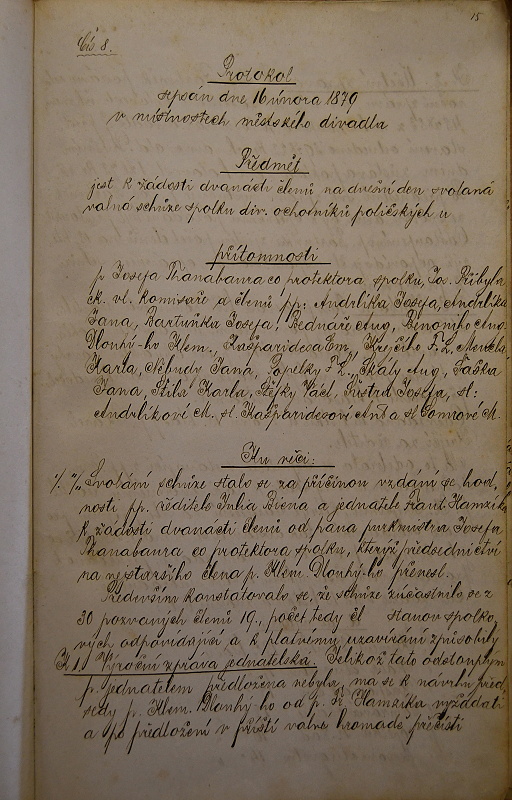 15
Čís 8.
Protokol
sepsán dne 16 února 1879
v místnostech městského divadla
Předmět
jest k žádosti dvanácti členů na dnešní den svolaná
valná schůze spolku div. ochotníků poličských u
přítomnosti
p. Josefa Thanabaura co protektora spolku, Jos. Přibyla,
ck. vl. komisaře a členů pp: Andrlíka Josefa, Andrlíka
Jana, Bartuňka Josefa, Bednáře Aug, Aug.
Dlouhý-ho Klem., Kašparidesa Em, Krejčího F. L,
Karla, Nebudy Jana, Popelky F. K., Skály Aug, Taška
Jana, Karla, Václ, Josefa, sl:
Andrlíkové M. sl. Kašparidesové Ant a sl M.
Ku věci:
1/. "/. Svolání schůze stalo se za příčinou vzdání se hod,
ností pp. ředitele Julia Biena a jednatele Frant. Hamzíka
k žádosti dvanácti členů od pána purkmistra Josefa
Thanabaura co protektora spolku, kterýž předsednictví
na nejstaršího člena p. Klem. Dlouhý-ho přenesl.
Především konstatovalo se, že schůze zúčastnilo se z
30 pozvaných členů 19., počet tedy čl stanov spolko,
vých odpovídající a k platnému uzavírání způsobilý
K 1. Výroční zpráva jednatelská. Jelikož tato odstouplým
p. jednatelem předložena nebyla, má se k návrhu před,
sedy p. Klem. Dlouhý ho od p. Fr. Hamzíka vyžádati
a po předložení v příští valné hromadě přečísti